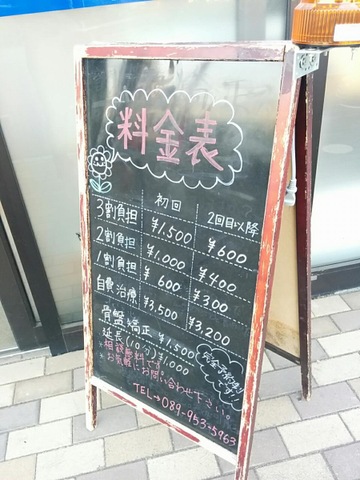 料金表
初回 2回目以降
3割負担 ¥1,500 ¥600
2割負担 ¥1,000 ¥400
1割負担 ¥600 ¥300
自費治療 ¥3,500 ¥3,200
骨盤矯正 ¥1,500
延長(10分)¥1,000
*相談無料です。
*お気軽にお問い合わせ下さい。
完全予約制です!!
TEL→089-953-5963